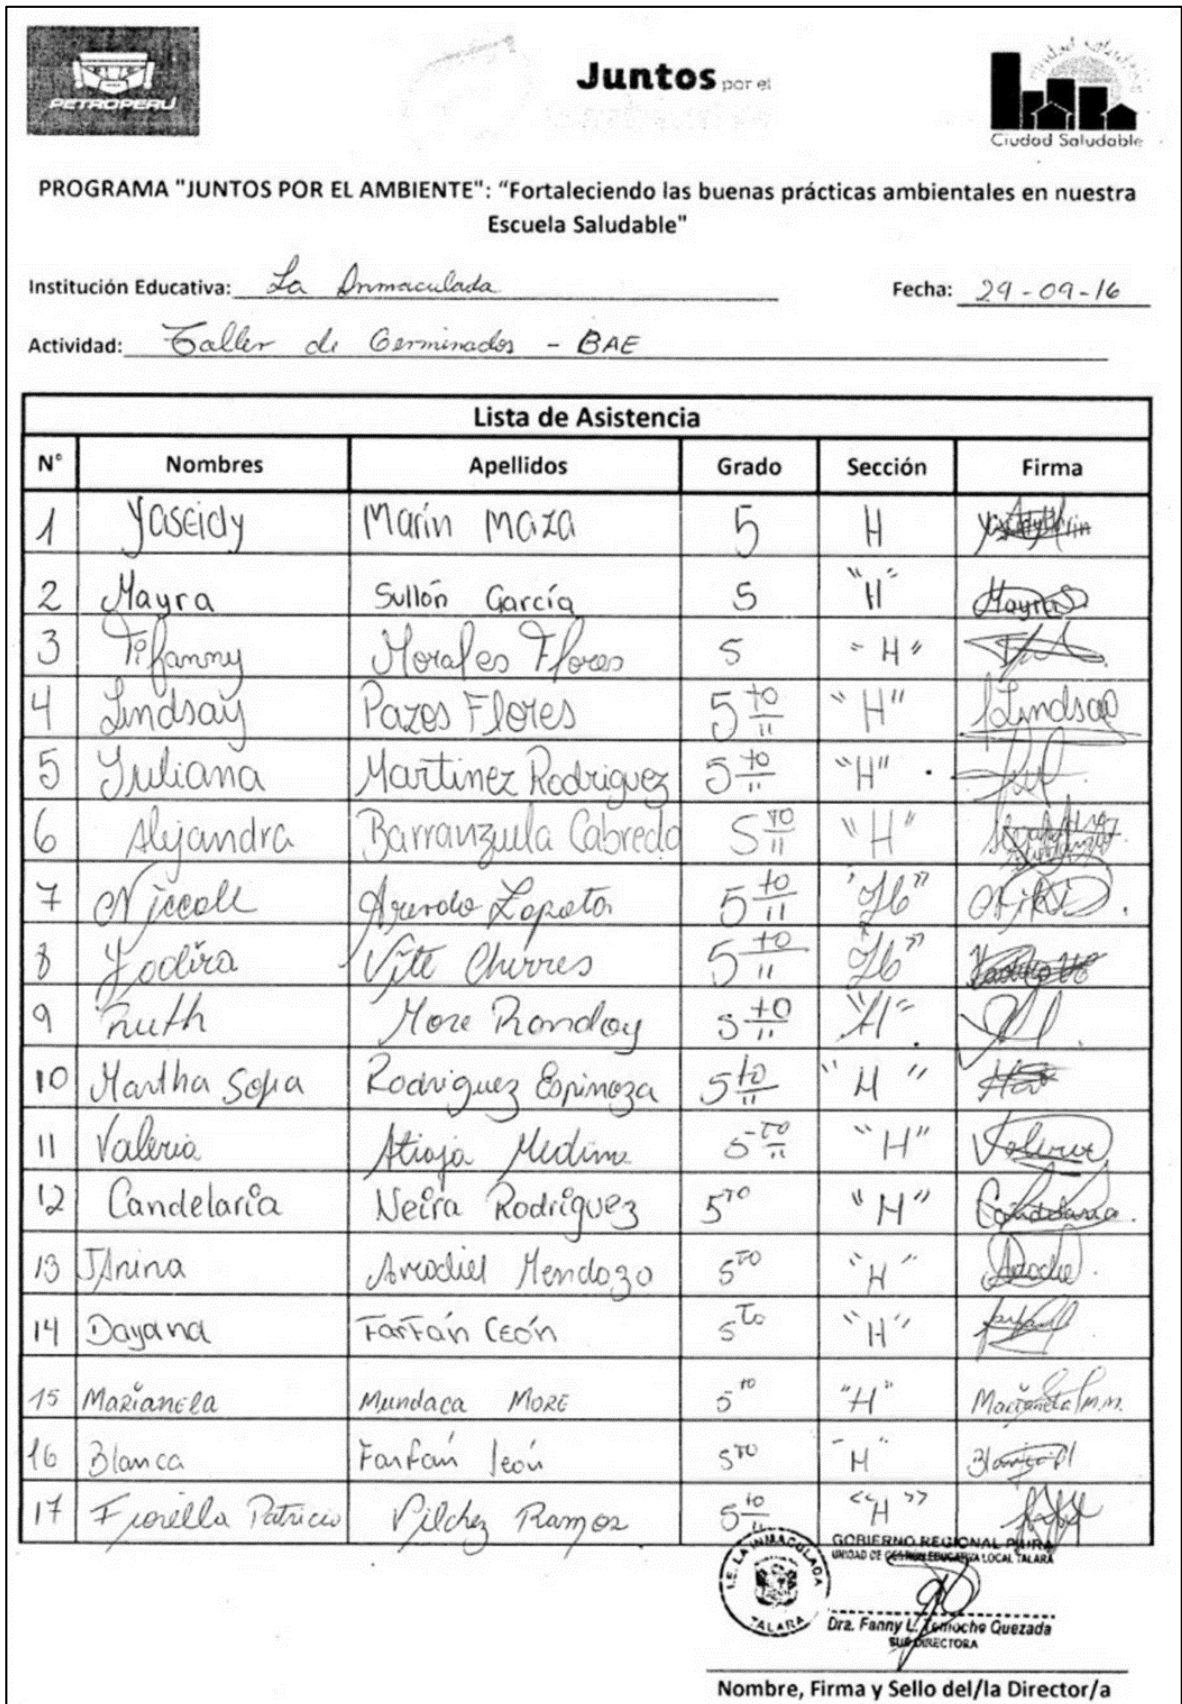 PETROPERÚ
Juntos por el
Ciudad Saludable
Ciudad Saludable
PROGRAMA "JUNTOS POR EL AMBIENTE": "Fortaleciendo las buenas prácticas ambientales en nuestra
Escuela Saludable"
Institución Educativa: La Inmaculada Fecha: 29-09-16
Actividad: Taller de Germinados - BAE
Lista de Asistencia
N° Nombres Apellidos Grado Sección Firma
1 Yaseidy Marín Maza 5 H
2 Mayra Sullón García 5 "H" Mayra S.
3 Tifanny Morales Flores 5 "H"
4 Lindsay Pazos Flores 5to "H" Lindsay
5 Juliana Martinez Rodriguez 5to "H"
6 Alejandra Barranzuela Cabredo 5to "H"
7 Niccoll Zapata 5to "H"
8 Yadira Vite Chirres 5to "H"
9 Ruth More Rondoy 5to "H"
10 Martha Sofia Rodriguez Espinoza 5to "H"
11 Valeria Atioja Medina 5to "H" Valeria
12 Candelaria Neira Rodríguez 5to "H" Candelaria
13 JAnina Mendoza 5to "H"
14 Dayana Farfán León 5to "H"
15 Marianela Mundaca More 5to "H" Marianela M.M.
16 Blanca Farfán león 5to "H"
17 Fiorella Patricia Vilchez Ramos 5to "H"
I.E. LA INMACULADA TALARA
GOBIERNO REGIONAL PIURA
UNIDAD DE GESTIÓN EDUCATIVA LOCAL TALARA
Dra. Fanny L. Temoche Quezada
SUB DIRECTORA
Nombre, Firma y Sello del/la Director/a